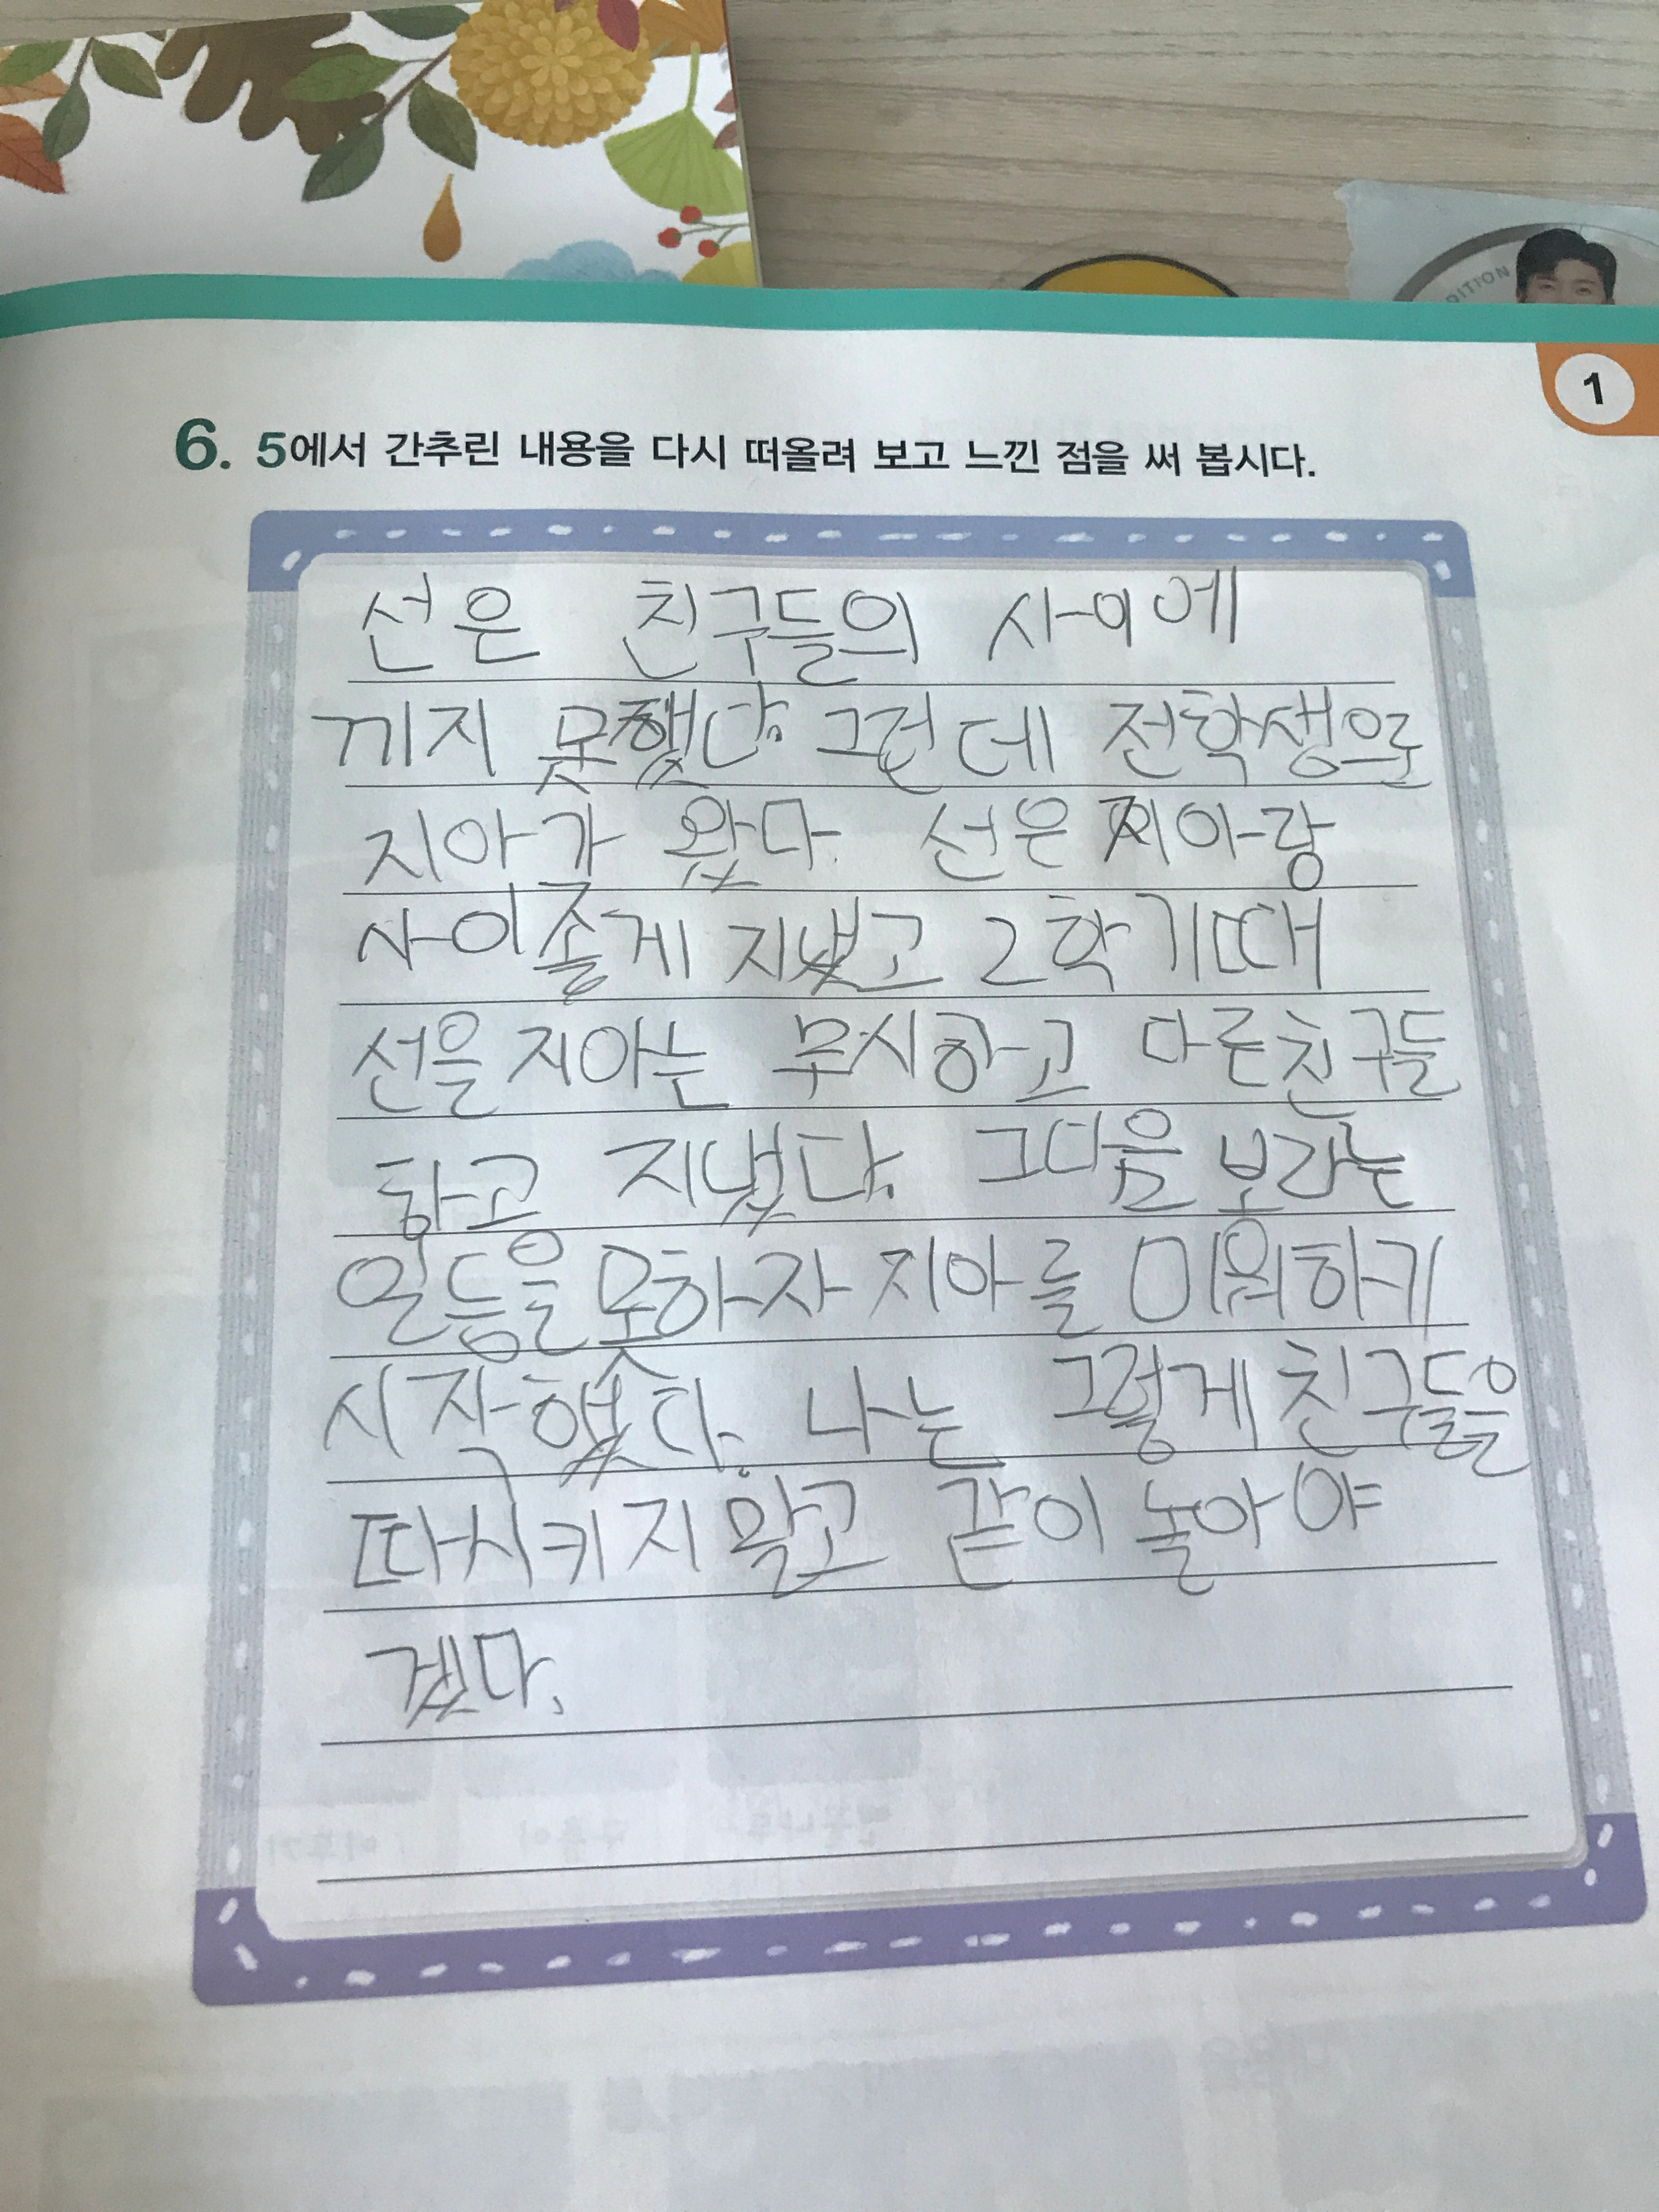 DITION
1
6. 5에서 간추린 내용을 다시 떠올려 보고 느낀 점을 써 봅시다.
선은 친구들의 사이에
끼지 못했다. 그런데 전학생으로
지아가 왔다. 선은 지아랑
사이좋게 지냈고 2학기때
선을 지아는 무시하고 다른친구들
하고 지냈다. 그다음 보라는
일등을 못하자 지아를 미워하기
시작했다. 나는 그렇게 친구들을
따시키지 말고 같이 놀아야
겠다.